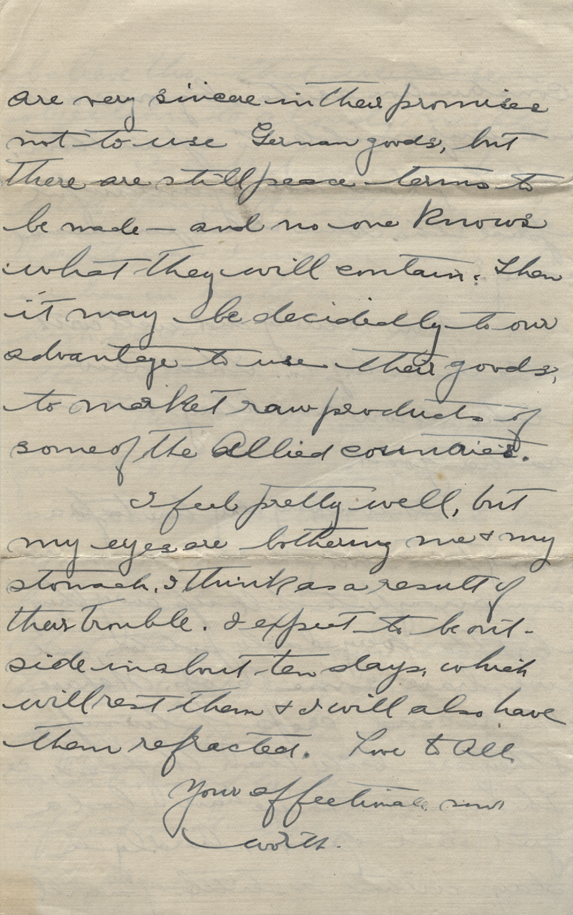 are very sincere in their promises
not to use German goods, but
there are still peace terms to
be made — and no one knows
what they will contain. Then
it may be decidedly to our
advantage to use their goods,
to market raw products of
some of the Allied countries.
I feel pretty well, but
my eyes are bothering me & my
stomach, I think as a result of
their trouble. I expect to be out-
side in about ten days, which
will rest them & I will also have
them refracted. Love to All
Your affectionate son
Worth.